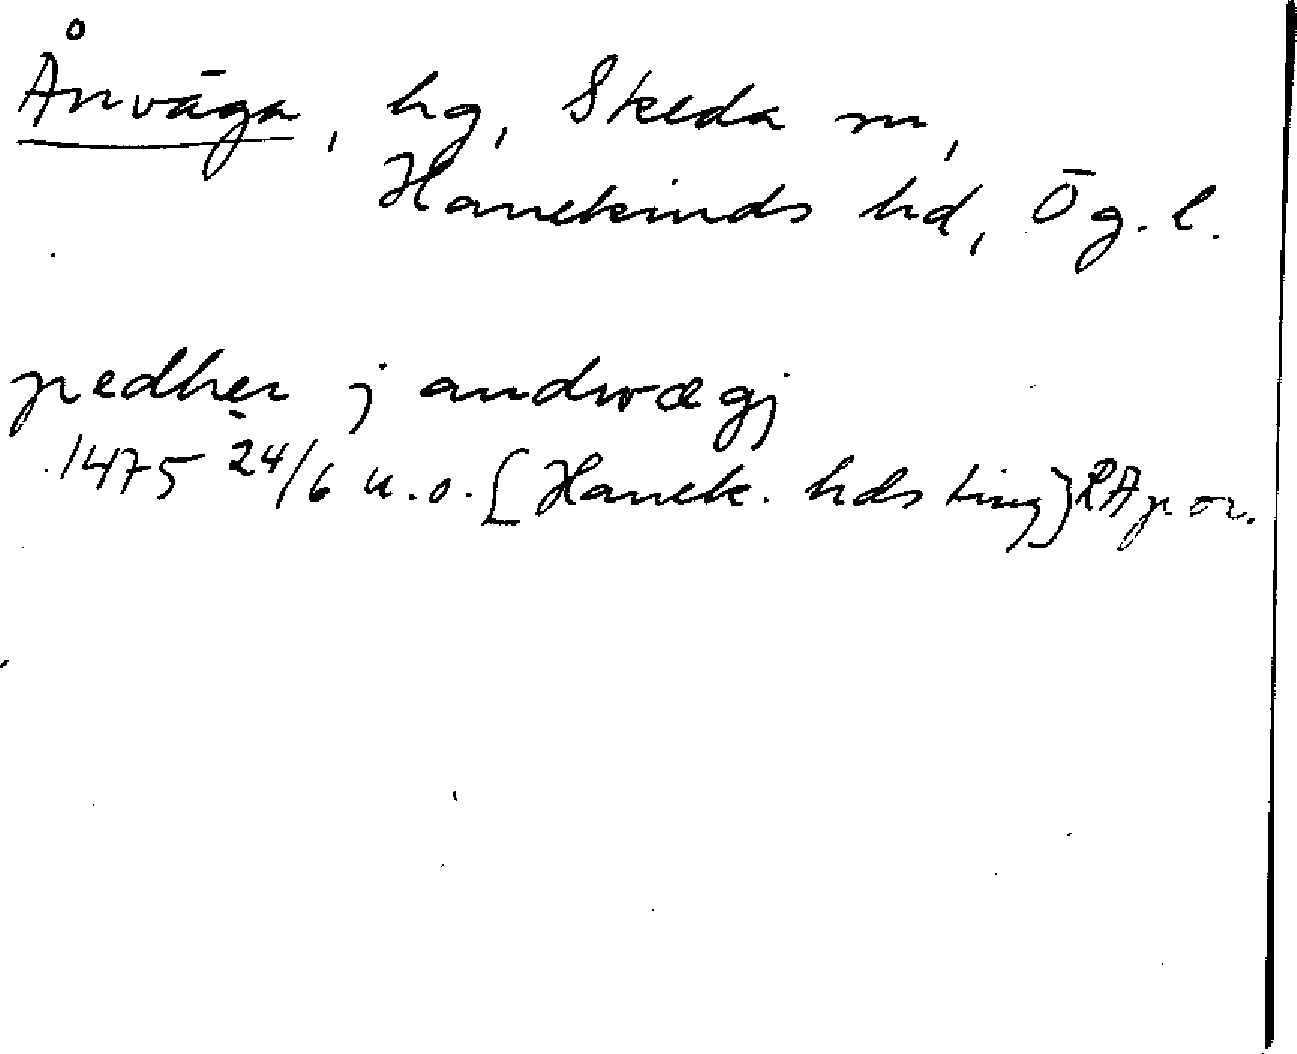 Ånväga, hg, Skeda sn,
Hanekinds hd, Ög. l.
pedher j andwægj
1475 24/6 u.o. [Hanek. hds ting] RAp or.